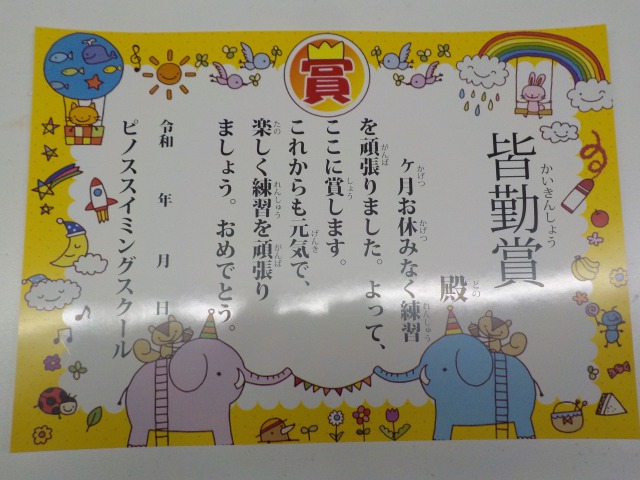 賞
皆勤賞
かいきんしょう
殿
どの
ヶ月お休みなく練習
かげつ かげつ れんしゅう
を頑張りました。よって、
がんば
ここに賞します。
しょう
これからも元気で、
げんき
楽しく練習を頑張り
たの れんしゅう がんば
ましょう。おめでとう。
令和 年 月 日
ピノススイミングスクール